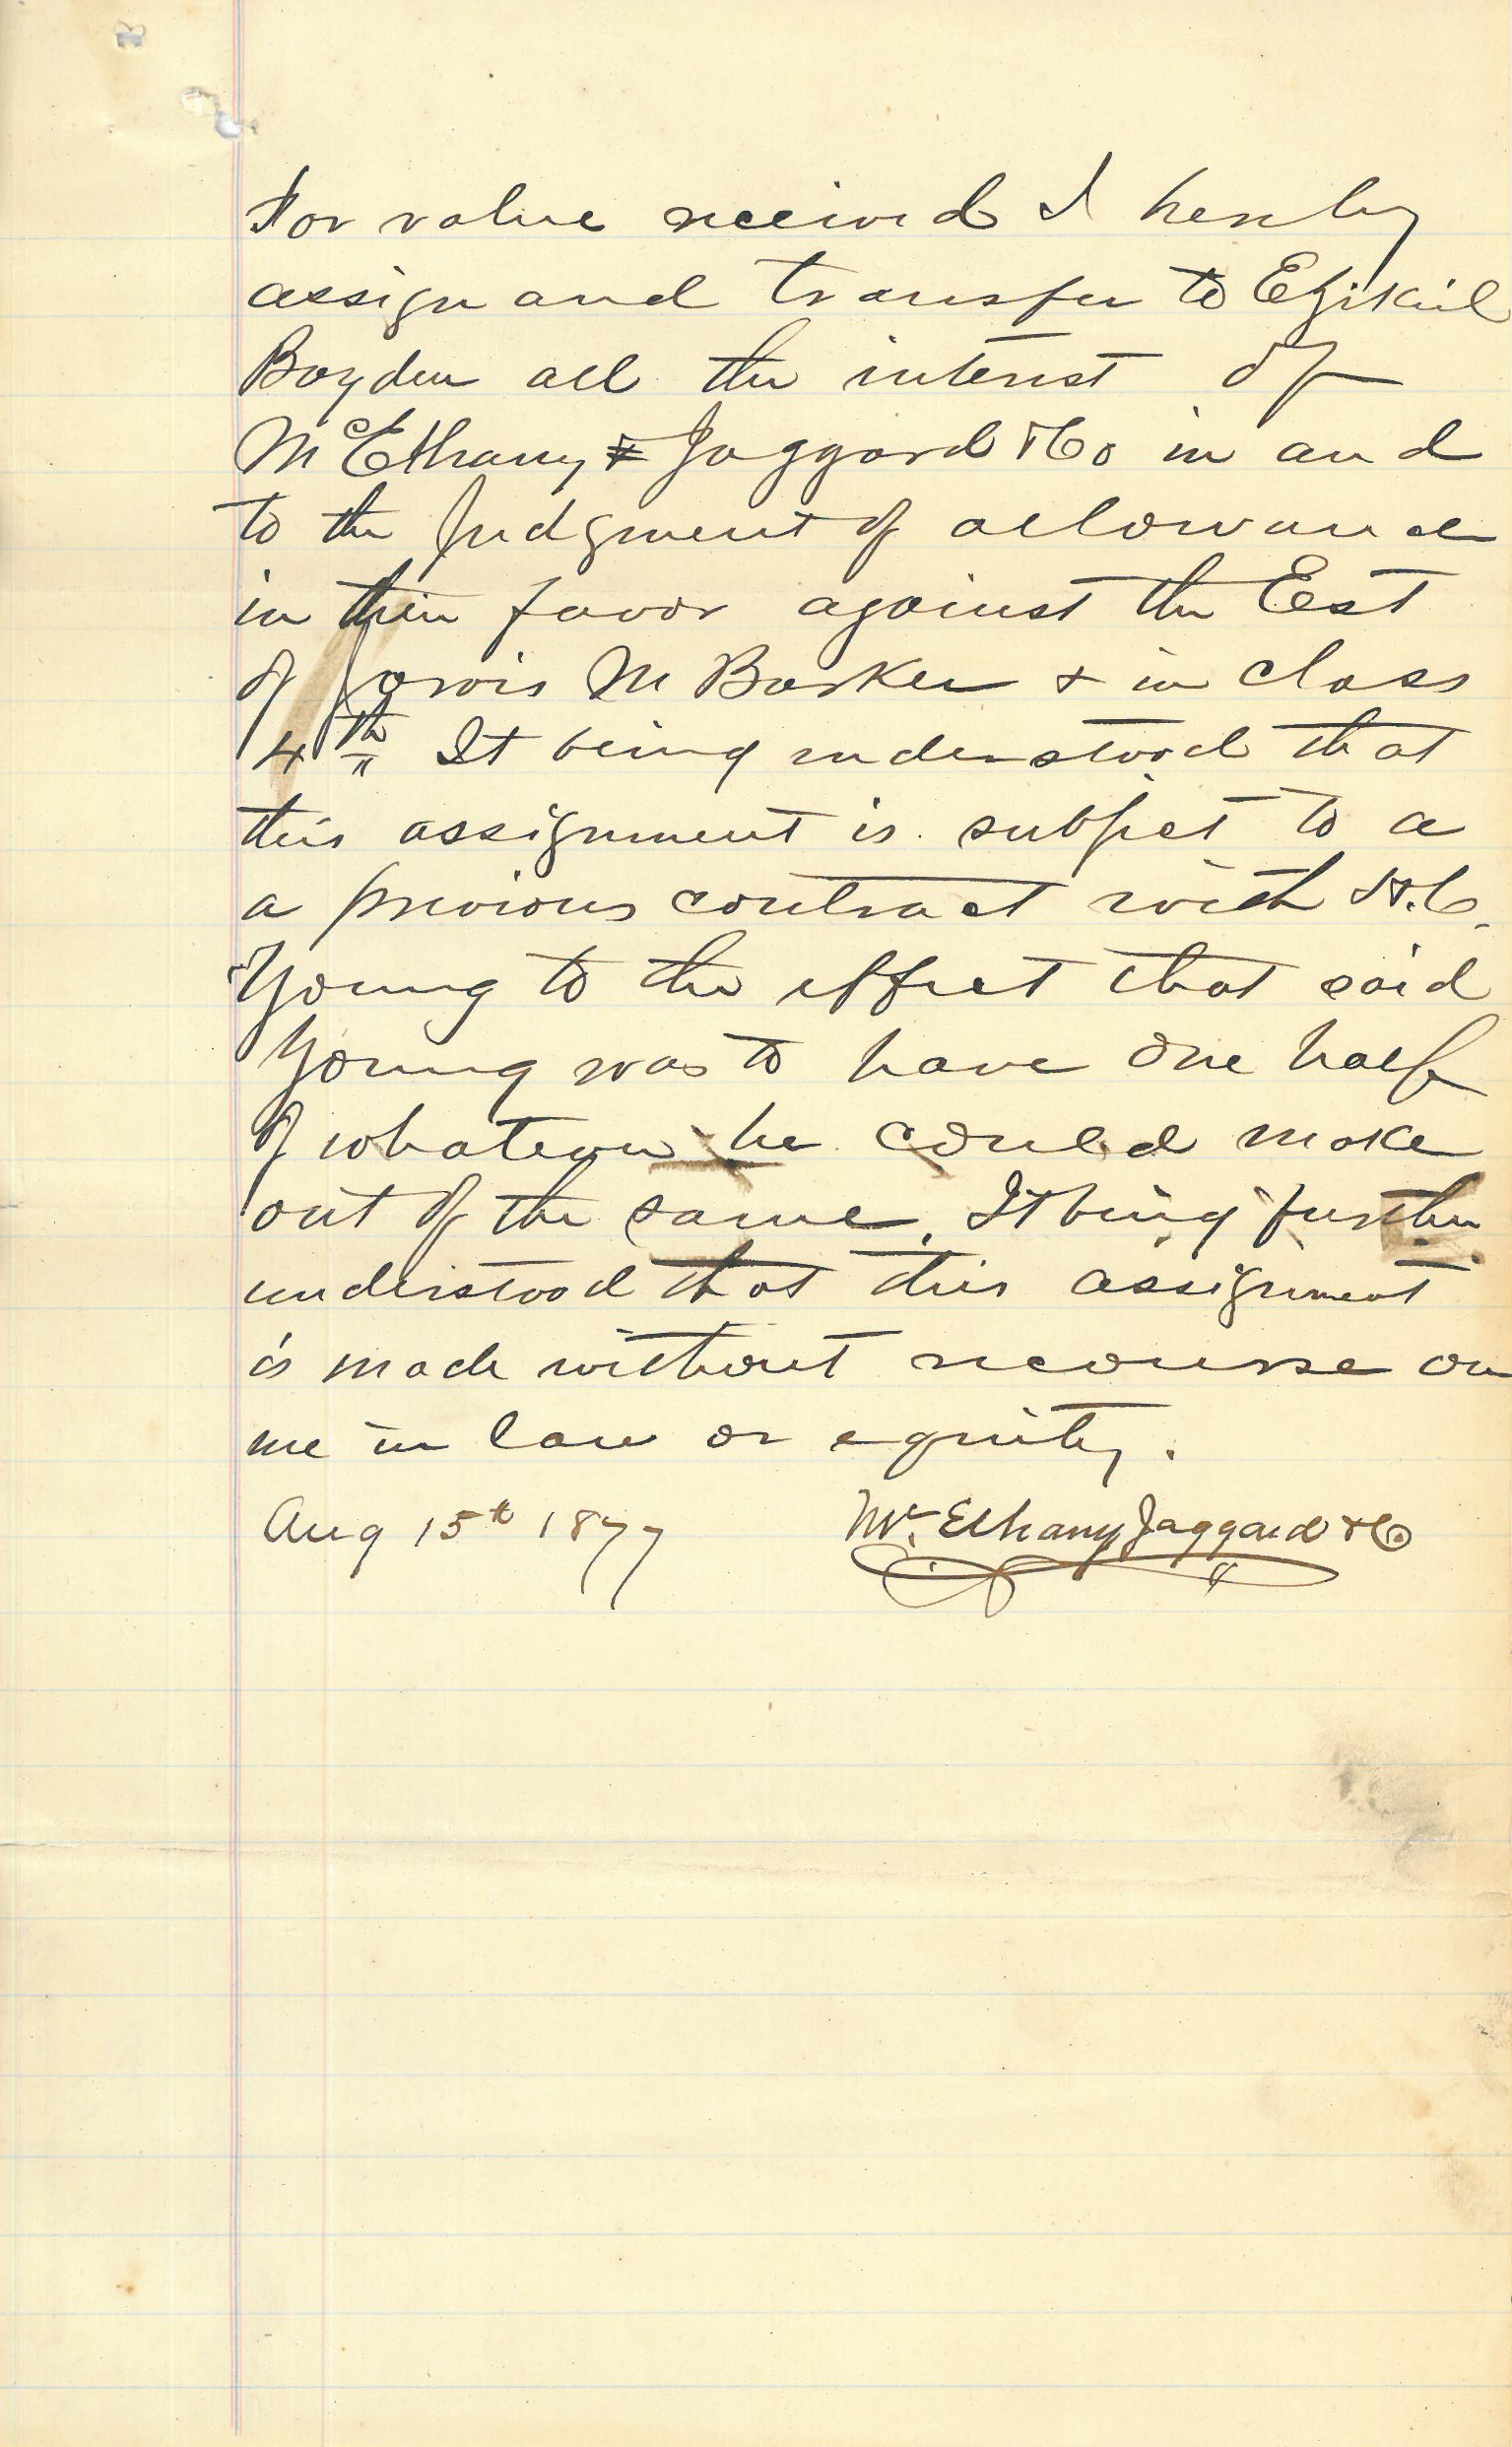 For value received I hereby
assign and transfer to Ezikiel
Boyden all the interest of
McElhany & Jaggard & Co in and
to the Judgment of allowance
in their favor against the Est
of Jarvis M Barker & in class
4th It being understood that
this assignment is subject to a
a previous contract with H.C.
Young to the effect that said
Young was to have one half
of whatever he could make
out of the same, It being further
understood that this assignment
is made without recourse on
me in law or equity.
Aug 15th 1877 McElhany Jaggard & Co